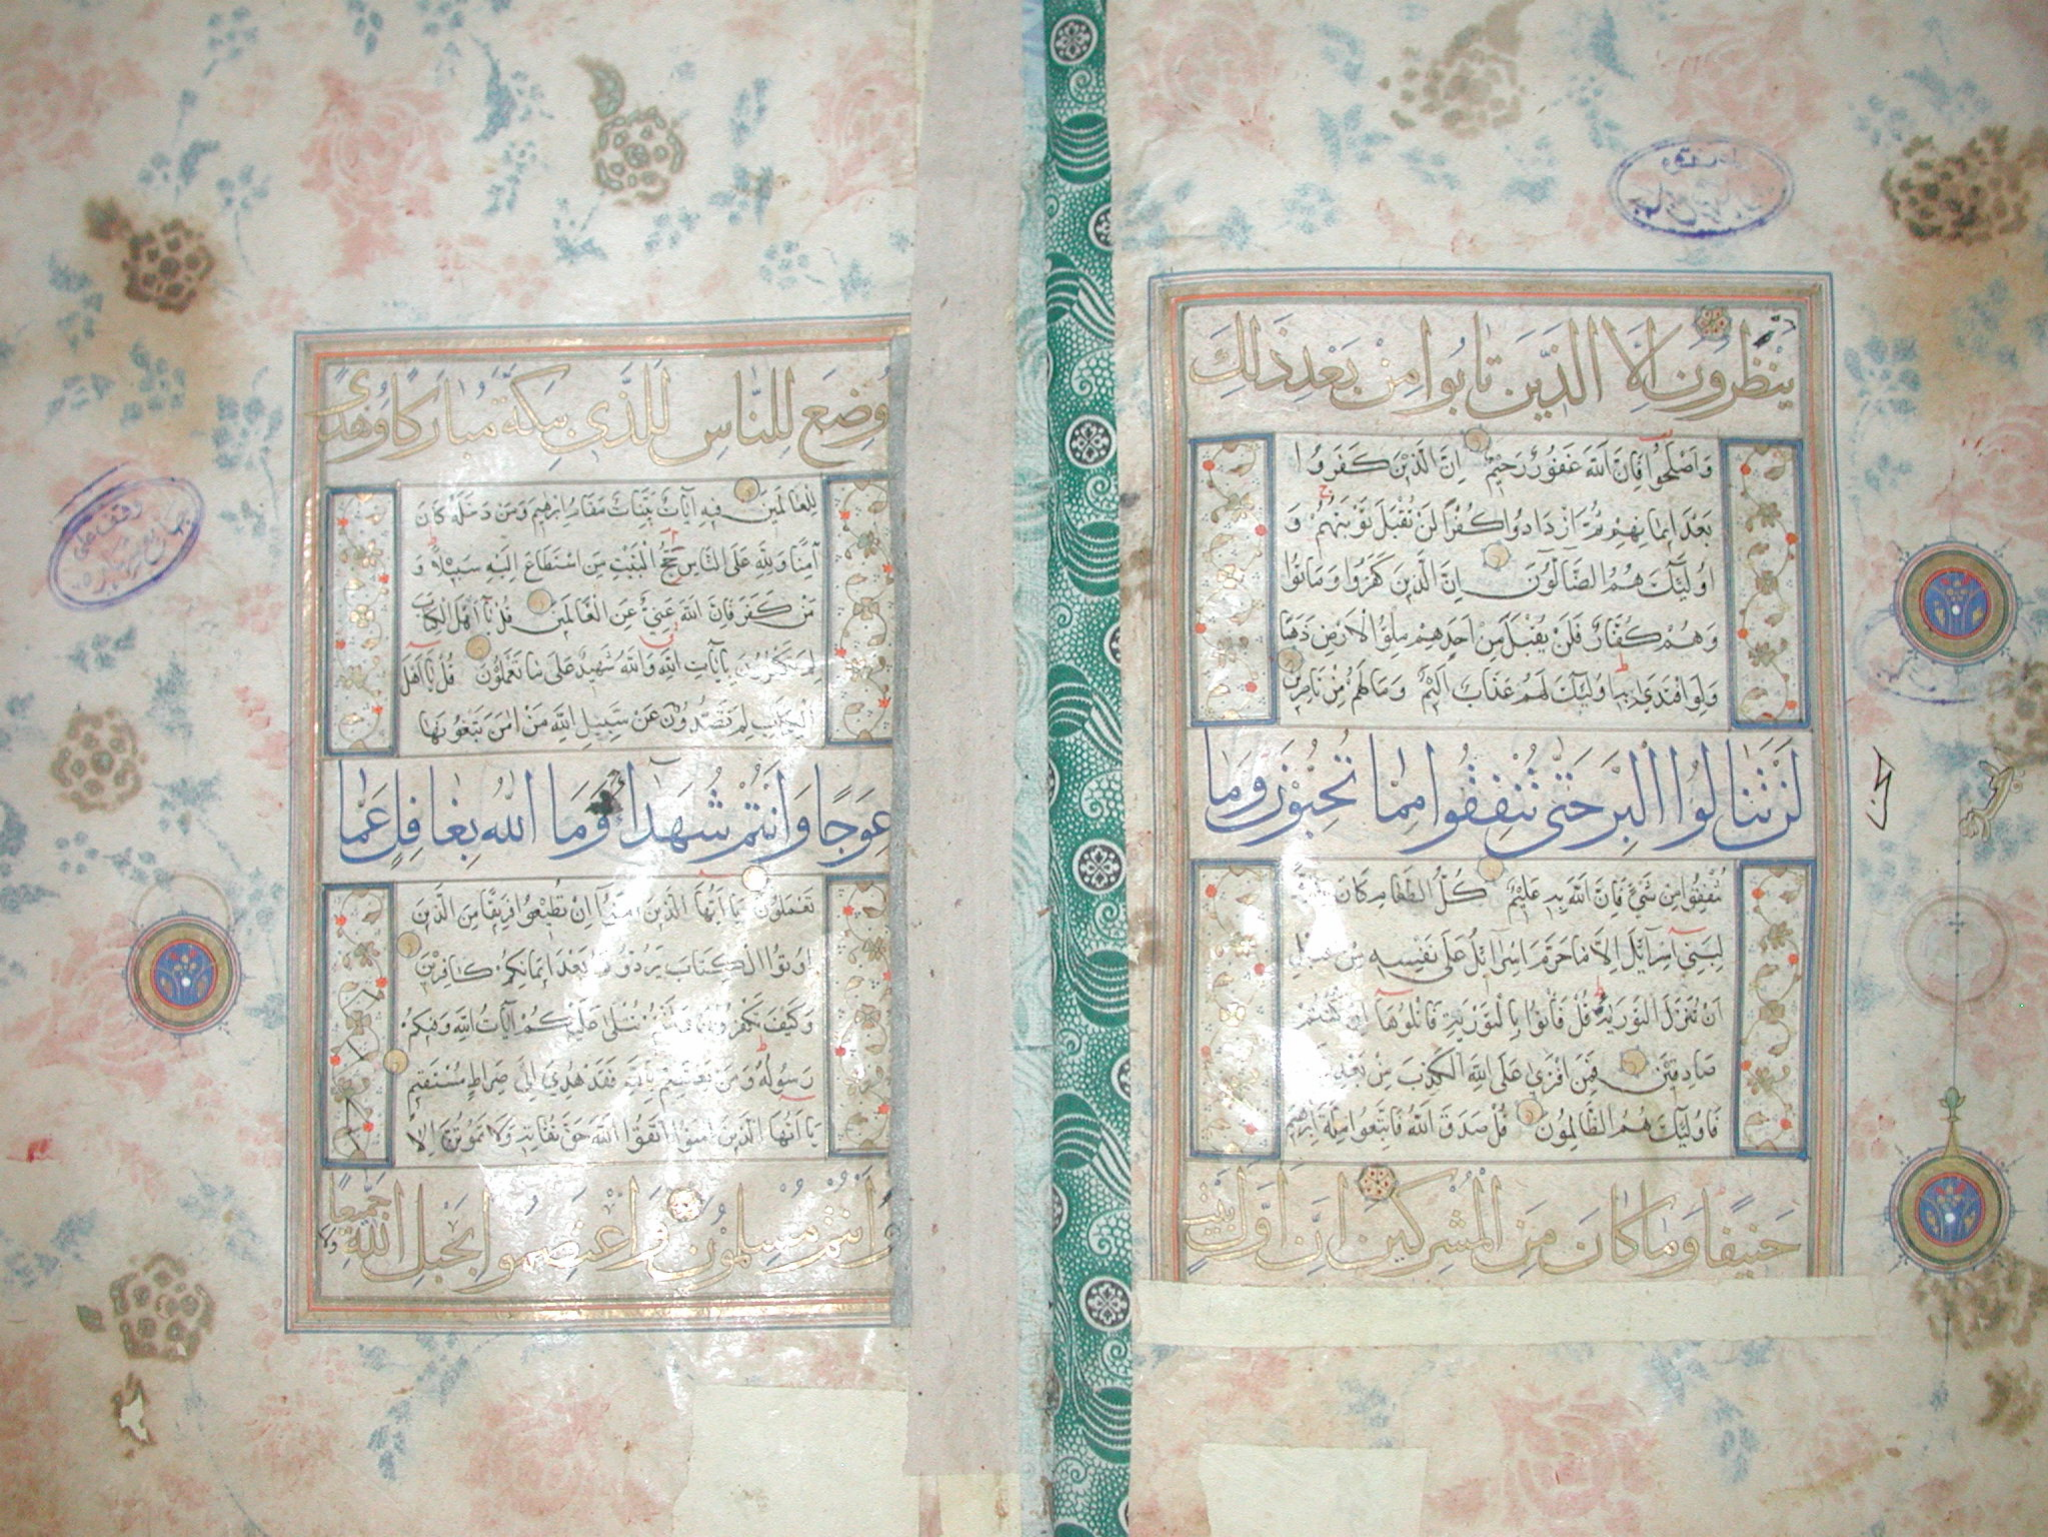 ينظرون الا الذين تابوا من بعد ذلك
واصلحوا فان الله غفور رحيم ان الذين كفروا
بعد ايمانهم ثم ازدادوا كفرا لن تقبل توبتهم و
اولئك هم الضالون ان الذين كفروا وماتوا
وهم كفار فلن يقبل من احدهم ملؤ الارض ذهبا
ولو افتدى به اولئك لهم عذاب اليم وما لهم من ناصرين
لن تنالوا البر حتى تنفقوا مما تحبون وما
تنفقوا من شئ فان الله به عليم كل الطعام كان
لبني اسرائيل الا ما حرم اسرائيل على نفسه من قبل
ان تنزل التورية قل فأتوا بالتورية فاتلوها ان كنتم
صادقين فمن افترى على الله الكذب من بعد
فاولئك هم الظالمون قل صدق الله فاتبعوا ملة ابرهيم
حنيفا وما كان من المشركين ان اول بيت
وضع للناس للذى ببكة مباركا وهدى
للعالمين فيه آيات بينات مقام ابرهيم ومن دخله كان
آمنا ولله على الناس حج البيت من استطاع اليه سبيلا و
من كفر فان الله غني عن العالمين قل يا اهل الكتاب
لم تكفرون بآيات الله والله شهيد على ما تعملون قل يا اهل
الكتاب لم تصدون عن سبيل الله من امن تبغونها
عوجا وانتم شهداء وما الله بغافل عما
تعملون يا ايها الذين آمنوا ان تطيعوا فريقا من الذين
اوتوا الكتاب يردوكم بعد ايمانكم كافرين
وكيف تكفرون وانتم تتلى عليكم آيات الله وفيكم
رسوله ومن يعتصم بالله فقد هدي الى صراط مستقيم
يا ايها الذين امنوا اتقوا الله حق تقاته ولا تموتن الا
وانتم مسلمون واعتصموا بحبل الله جميعا ولا